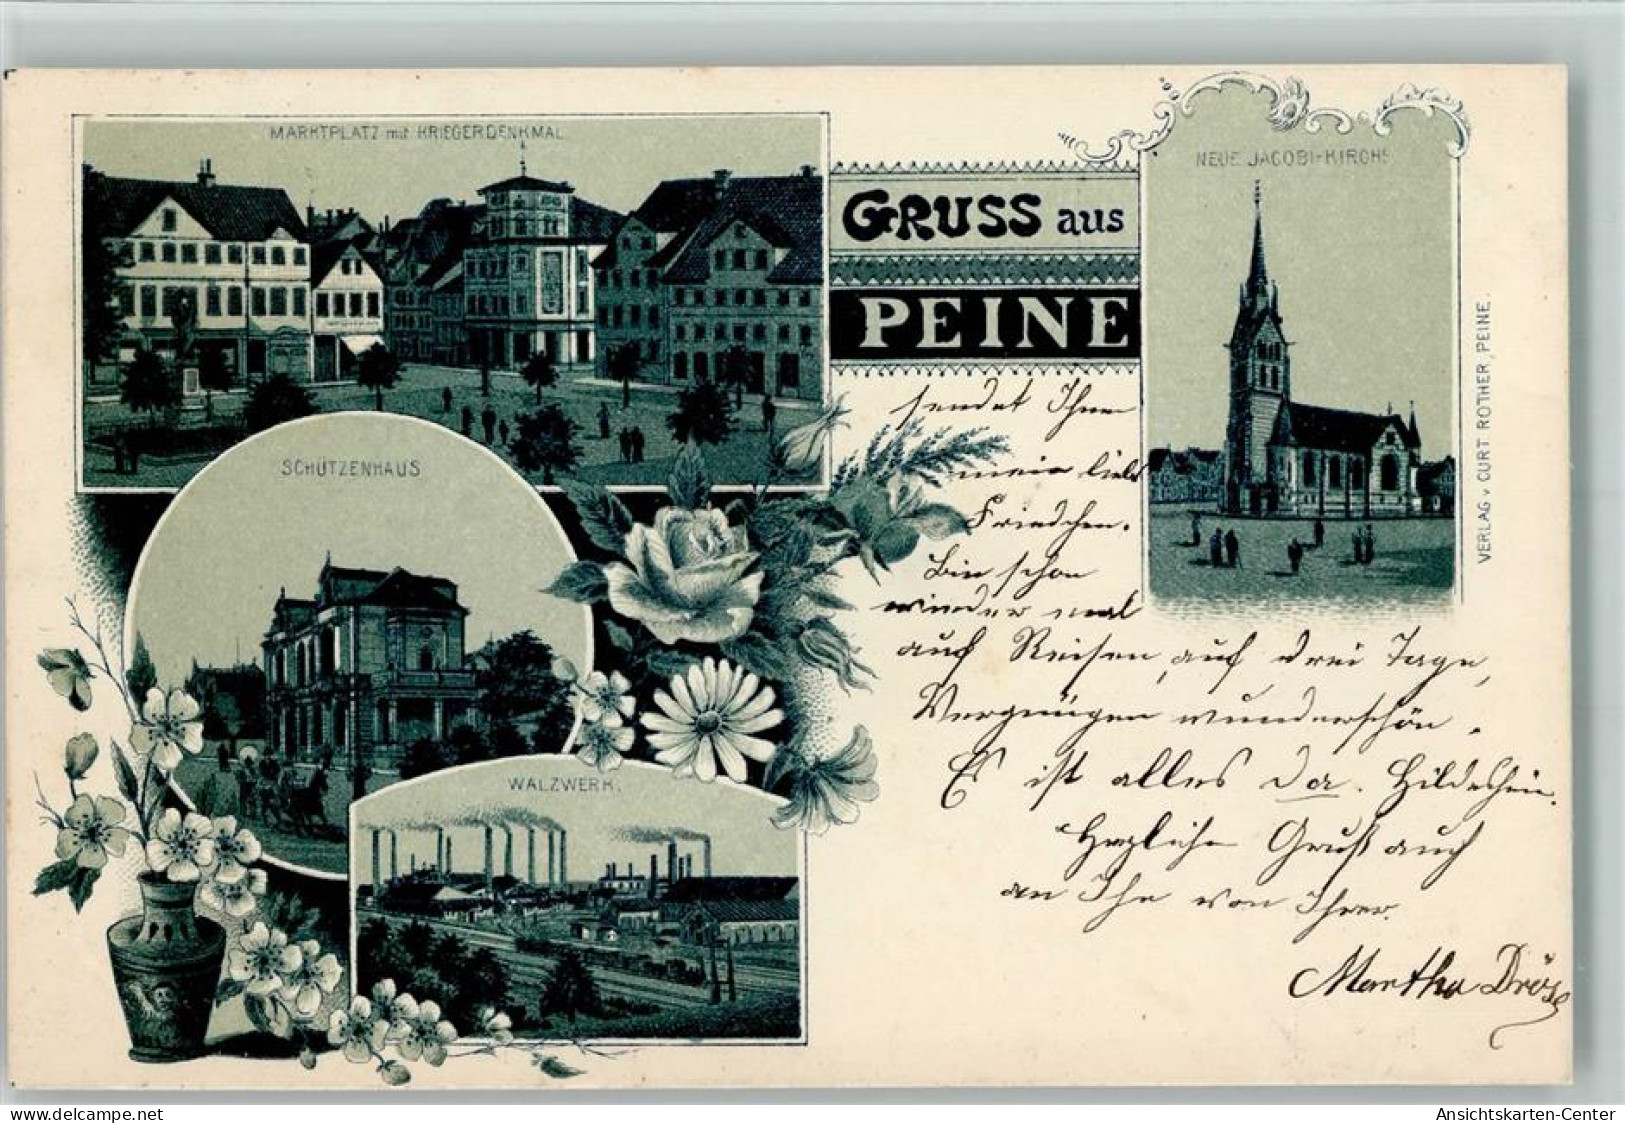 MARKTPLATZ mit KRIEGERDENKMAL
GRUSS aus
PEINE
NEUE JACOBI-KIRCHE
SCHÜTZENHAUS
WALZWERK.
VERLAG v. CURT ROTHER, PEINE.
sendet Ihnen
mein liebs
Friedchen.
Bin schon
wieder mal
auf Reisen, auf drei Tage,
Vergnügen wunderschön.
Es ist alles da. Hildesheim.
Herzlichen Gruß auch
an Ihn von Ihrer
Martha Dröse
delcampe.net
Ansichtskarten-Center